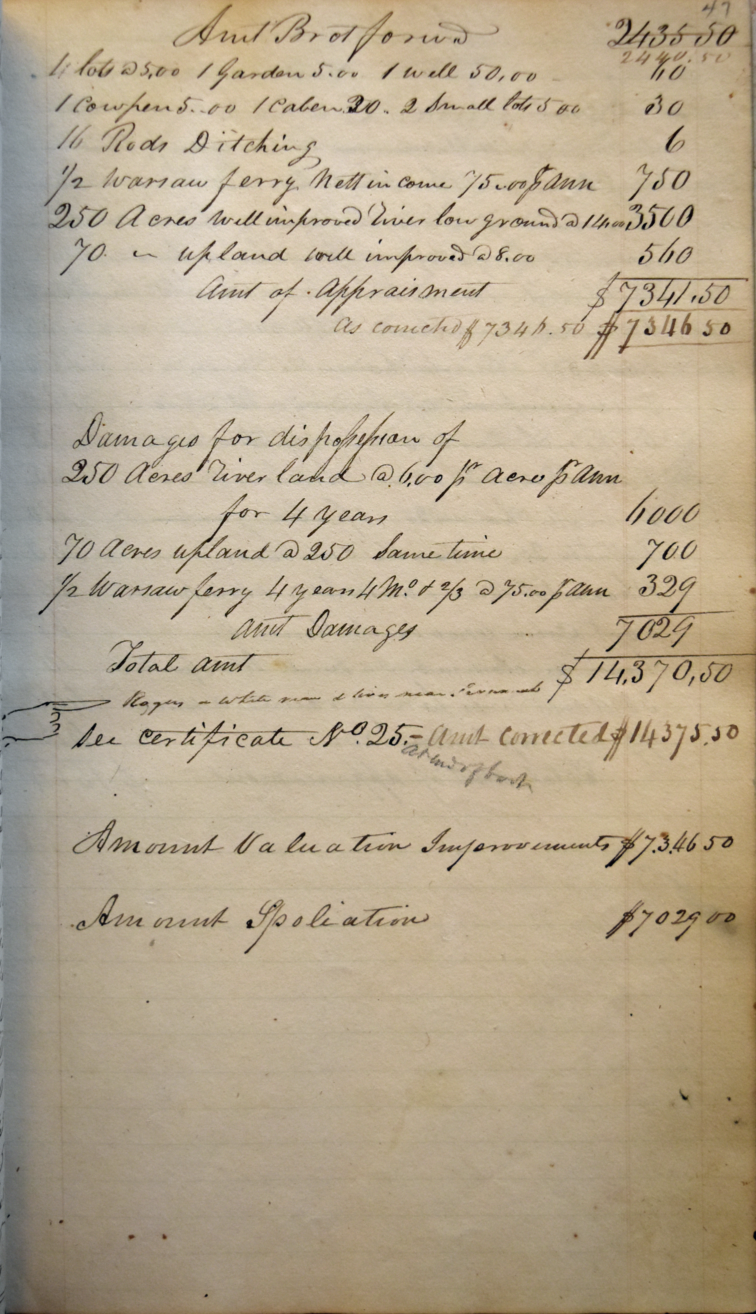 47
Amt Brot forwd 2435 50
2440.50
4 lots @ 5,00 1 Garden 5.00 1 well 50,00 60
1 Cowpen 5.00 1 Caben 20. 2 Small lots 5 00 30
16 Rods Ditching 6
1/2 Warsaw ferry Nett income 75.00 pr Ann 750
250 Acres well improved River low ground @ 14.00 3500
70 " upland well improved @ 8.00 560
Amt of Appraisment $7341.50
As corrected $7346.50 $7346 50
Damages for dispossession of
250 Acres River land @ 6,00 pr Acre pr Ann
for 4 years 6000
70 Acres upland @ 250 Same time 700
1/2 Warsaw ferry 4 years 4 Mo & 2/3 @ 75.00 pr Ann 329
Amt Damages 7029
Total amt $14,370,50
Rogers a white man & lives near
See certificate No. 25.- Amt Corrected $14375.50
at end of book
Amount Valuation Improvements $7346 50
Amount Spoliation $7029 00